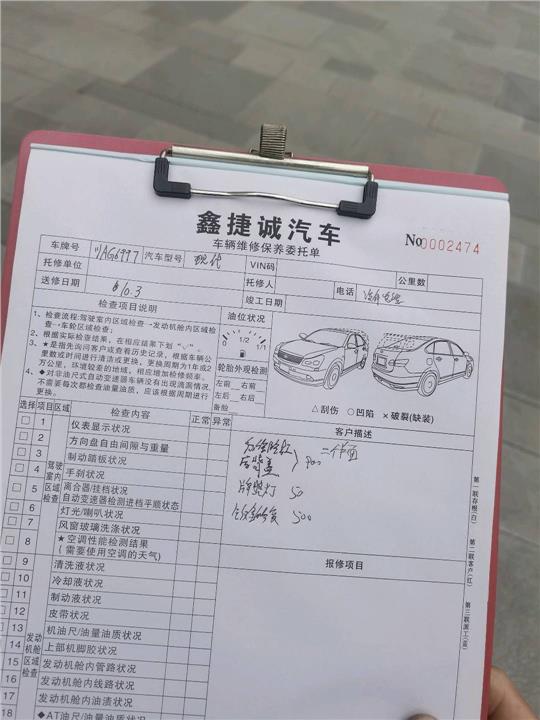 鑫捷诚汽车
车辆维修保养委托单
No 0002474
车牌号 川AG6997 汽车型号 现代 VIN码
托修单位 托修人 公里数
送修日期 10.3 竣工日期 电话
检查项目说明
1、检查流程:驾驶室内区域检查→发动机舱内区域检查→车轮区域检查;
2、根据实际检查结果,在相应结果下划“✓”。
3、★是指先询问客户或查看历史记录,根据车辆公里数或时间进行清洁或更换,更换周期为1年或2万公里,环境较差的地域,相应增加检修频率。
4、◆对非油尺式自动变速器车辆没有出现滴漏情况,不需要每次都检查油量油质,应该根据周期进行更换。
油位状况
1/2
1/1
轮胎外观检测
左前 右前
左后 右后
备胎
△刮伤 ○凹陷 ×破裂(缺装)
选择 项目区域 检查内容 正常 异常
客户描述
驾驶室内区域检查
1 仪表显示状况
2 方向盘自由间隙与重量
3 制动踏板状况
4 手刹状况
5 离合器挂档状况
自动变速器检测进档平顺状态
6 灯光/喇叭状况
7 风窗玻璃洗涤状况
8 ★空调性能检测结果
(需要使用空调的天气)
牌照灯 50
500
报修项目
发动机舱区域检查
9 清洗液状况
10 冷却液状况
11 制动液状况
12 皮带状况
13 机油尺/油量油质状况
14 上部机脚胶状况
15 发动机舱内管路状况
16 发动机舱内线路状况
17 发动机舱内油渍状况
18 ◆AT油尺/油量油质状况
第一联存根(白)
第二联客户(红)
第三联派工(蓝)